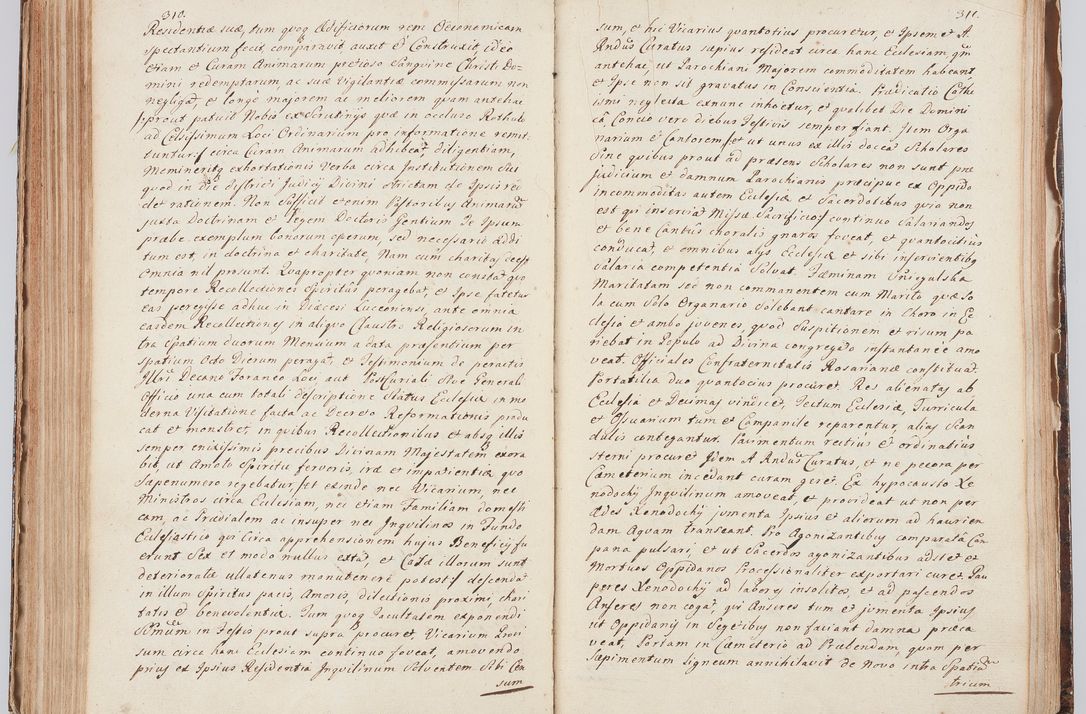 310.
Residentiæ suæ, tum quoq Ædificiorum rem Oeconomicam
spectantium fecit, comparavit, auxit et Construxit, ideo
etiam et Curam Animarum pretioso Sanguine Christi Do=
mini redemptarum, ac suæ Vigilantiæ commissarum non
negligat, et longe majorem ac meliorem quam antehac
prout patuit Nobis ex Scrutinijs quæ in occluso Rothulo
ad Celsissimum Loci Ordinarium pro informatione remit
tuntur circa Curam Animarum adhibeat, diligentiam,
Memineritq exhortationis Verba circa Institutionem Sui
quod in Die districti Judicij Divini strictam de Ipsis red
det rationem. Non Sufficit etenim Pastoribus Animarum
juxta Doctrinam et Legem Doctoris Gentium Te Ipsum
præbe exemplum bonorum operum, sed necessario Addi
tum est, in doctrina et charitate, Nam cum charitas deest
omnia nil prosunt. Quapropter quoniam non constat quo
tempore Recollectiones Spiritus peragebat, et Ipse fatetur
eas peregisse adhuc in Diæcesi Luceoriensi, ante omnia
easdem Recollectiones in aliquo Claustro Religiosorum in
tra Spatium duorum Mensium a Data præsentium per
Spatium Octo Dierum peragat, et Testimonium de peractis
Illri Decano Foraneo Loci, aut Post Curiali Sive Generali
Officio una cum totali descriptione Status Ecclesiæ in mo
derna Visitatione facta ac Decreto Reformationis produ
cat et monstret, in quibus Recollectionibus et absq illis
semper enixissimis precibus Divinam Majestatem exora
bit, ut Amoto Spiritu fervoris, iræ et impatientiæ quo
Sæpenumero regebatur, et exinde nec Vicarium, nec
Ministros circa Ecclesiam, nec etiam Familiam domesti
cam, ac Prædialem ac insuper nec Inquilinos in Fundo
Ecclesiastico qui Circa apprehensionem hujus Beneficij fu
erunt Sex et modo nullus extat, et Casæ illorum sunt
deterioratæ ullatenus manutenere potest descendat
in illum Spiritus pacis, Amoris, dilectionis proximi, chari
tatis et benevolentiæ. Tum quoq Facultatem exponendi
SSmum in Festis prout supra procuret, Vicarium Provi
sum circa hanc Ecclesiam continuo foveat, amovendo
prius ex Ipsius Residentia Inquilinum Solventem Sibi Cen
sum
311.
sum, et hic Vicarius quantotius procuretur, et Ipsem et A.
Rndus Curatus sæpius resideat circa hanc Ecclesiam, quam
antehac, ut Parochiani Majorem commoditatem habeant,
et Ipse non sit gravatus in Conscientia. Prædicatio Cathe
ismi neglecta exnunc inhoetur, et qualibet Die Domini
ca, Concio vero diebus Festivis semper fiant. Item Orga
narium et Cantorem et ut unus ex illis doceat Scholares
Sine quibus prout ad præsens Scholares non sunt præ
judicium et damnum Parochianis præcipue ex Oppido
incommoditas autem Ecclesiæ et Sacerdotibus quia non
est qui inserviat Missæ Sacrificio continuo Salariandos
et bene Cantus choralis gnaros foveat, et quantocitius
conducat, et omnibus alijs Ecclesiæ et sibi inservientibus
Salaria competentia Solvat. Fæminam Sniegulska
Maritatam sed non commanentem cum Marito quæ So
la cum Solo Organario Solebant cantare in Choro in Ec
clesia et ambo juvenes, quod Suspitionem et risum pa
riebat in Populo ad Divina congregato instantanee amo
veat. Officiales Confraternitatis Rosarianæ constituat.
Portatilia duo quantocius procuret. Res alienatas ab
Ecclesia et Decimas vindicet, Tectum Ecclesiæ, Turricula
et Ossuarium tum et Companile reparentur, alias Scan
dulis contegantur. Pavimentum rectius et ordinatius
Sterni procuret Idem A. Rndus Curatus, et ne pecora per
Cæmeterium incedant curam geret. Ex hypocausto Xe
nodochij Inquilinum amoveat, et provideat ut non per
Ædes Xenodochij jumenta Ipsius et aliorum ad haurien
dam Aquam transeant. Pro Agonizantibus comparata Cam
pana pulsari, et ut Sacerdos agonizantibus adstet et
Mortuos Oppidanos Processionaliter exportari curet. Pau
peres Xenodochij ad labores insolitos, et ad pascendos
Anseres non cogat, qui Anseres tum et jumenta Ipsius
ut Oppidanis in Segetibus non faciant damna præca
veat. Portam in Cæmeterio ad Prælendam, quam per
Sæpimentum Ligneum annihilavit de Novo intra Spatium
trium